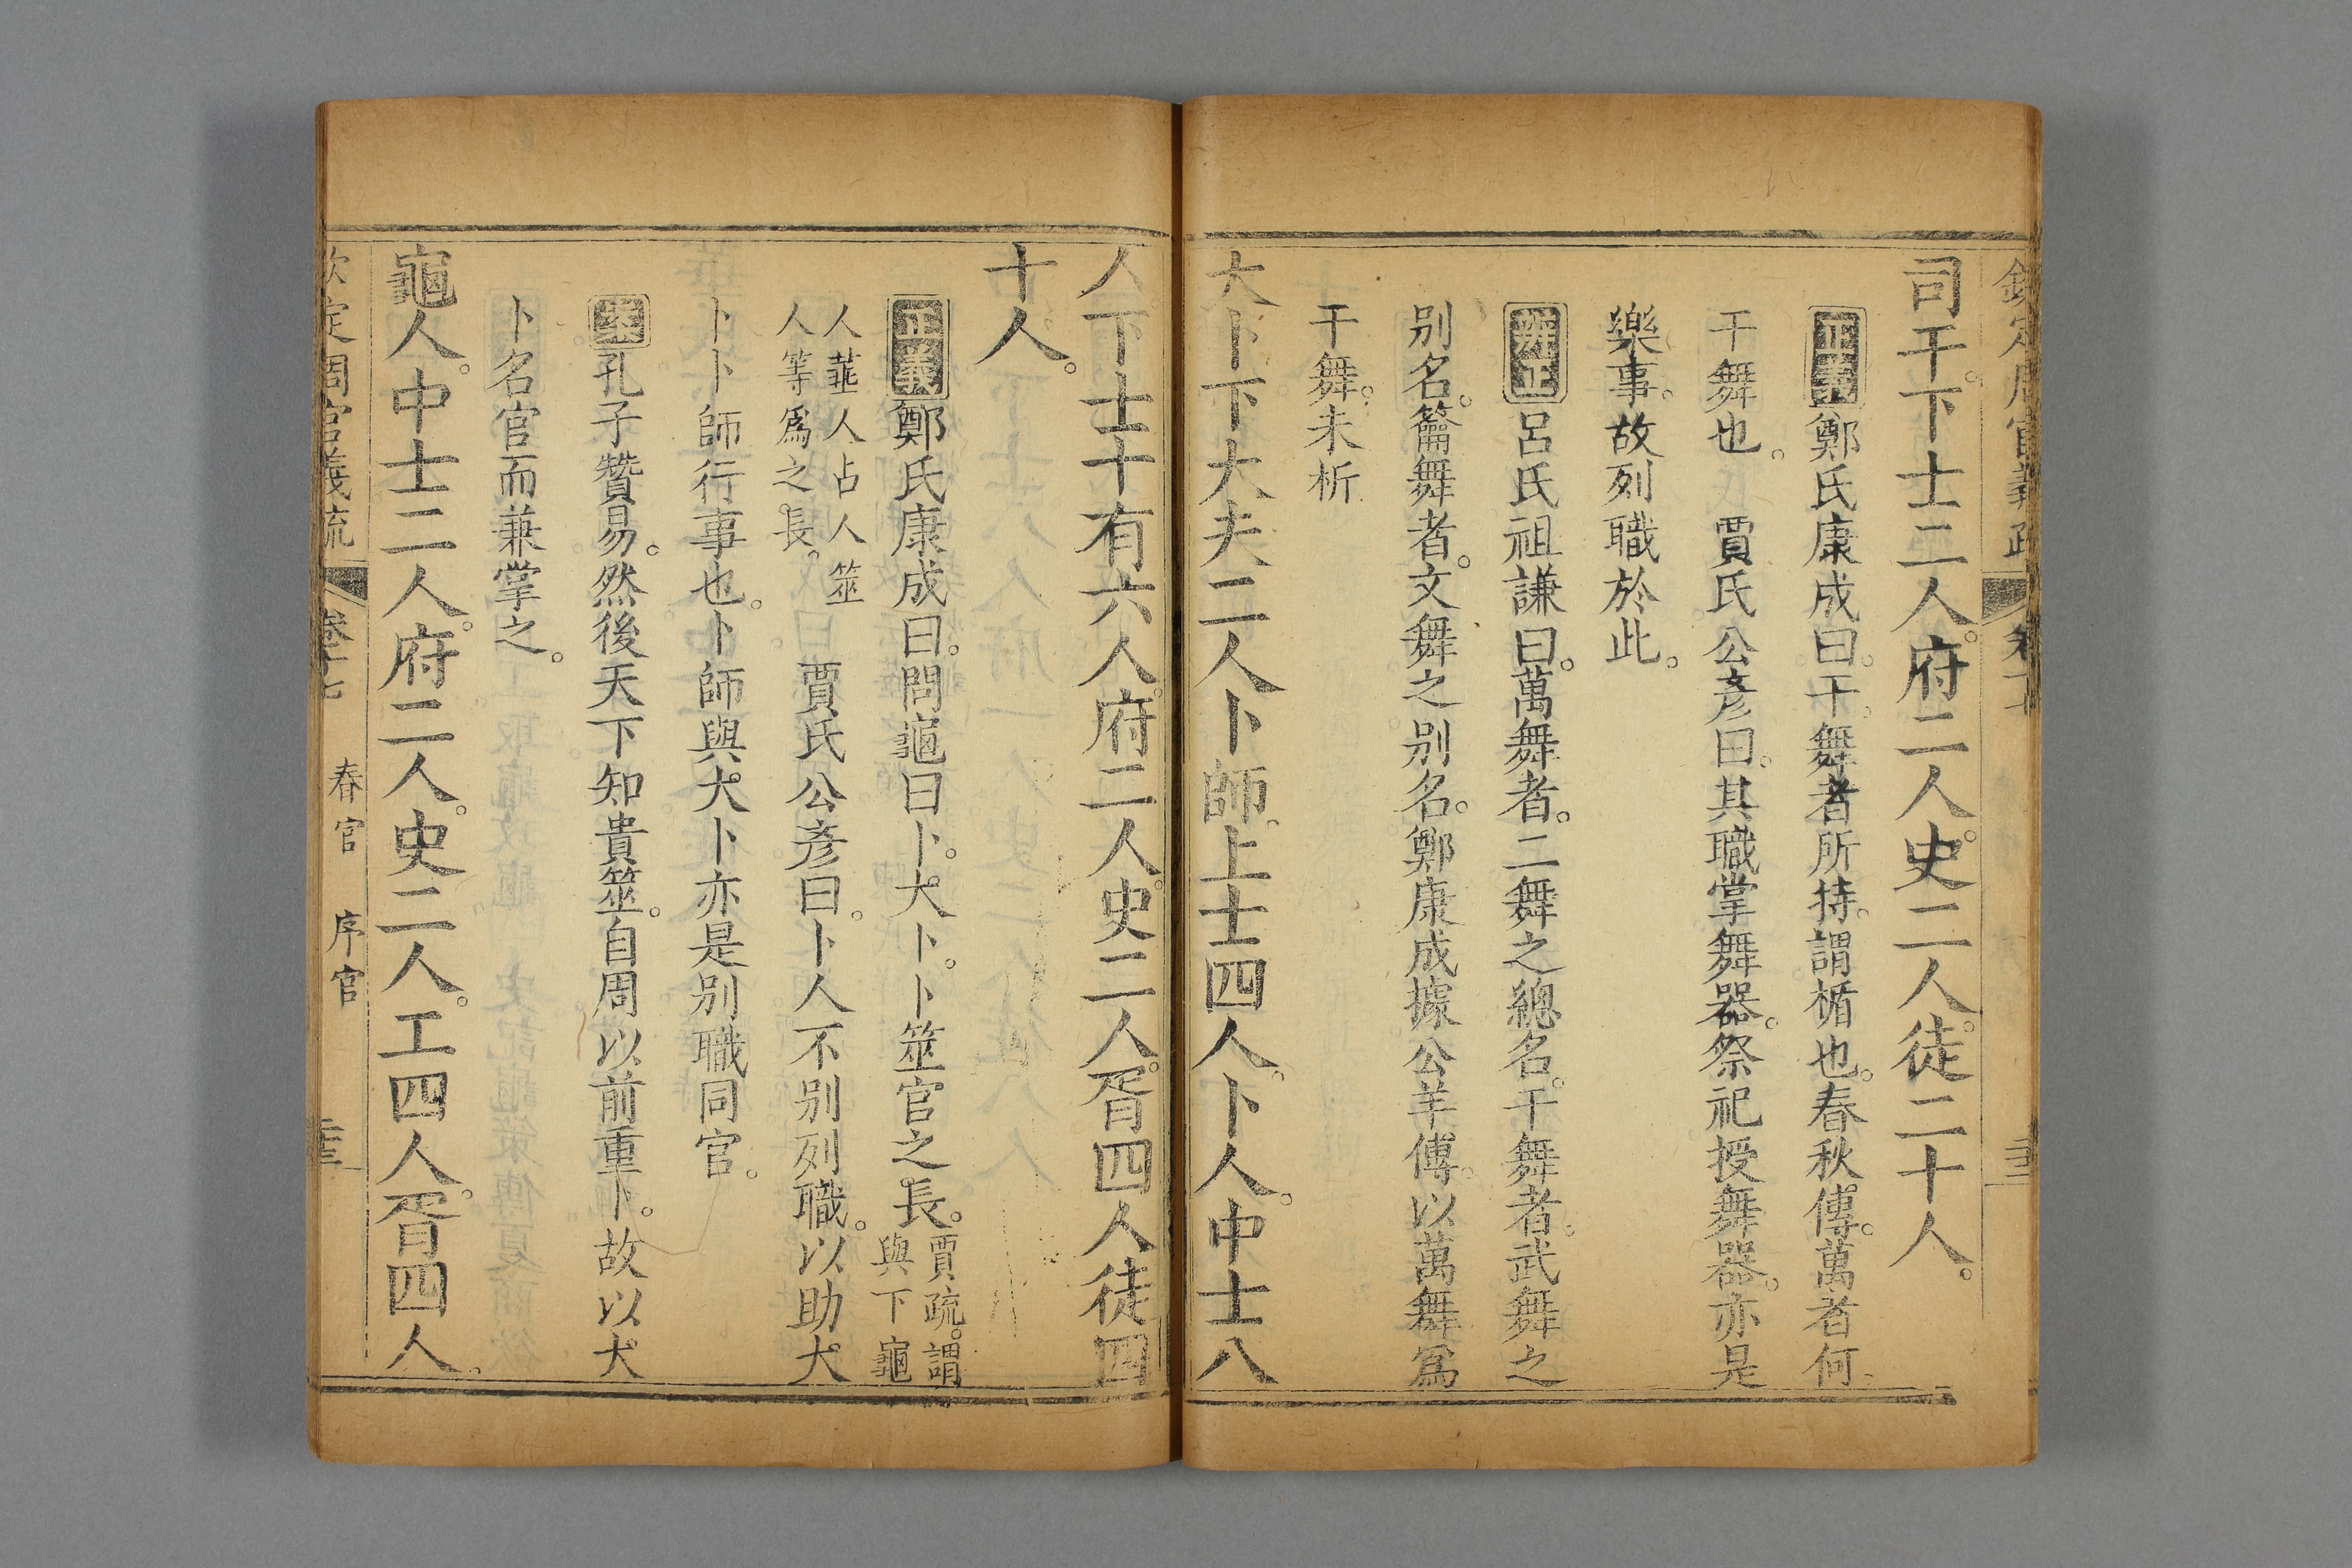 司干下士二人。府二人。史二人。徒二十人。
正義鄭氏康成曰。干舞者所持。謂楯也。春秋傳。萬者何。
干舞也。　賈氏公彥曰。其職掌舞器。祭祀授舞器。亦是
樂事。故列職於此。
辨正呂氏祖謙曰。萬舞者。二舞之總名。干舞者。武舞之
别名。籥舞者。文舞之别名。鄭康成據公羊傳。以萬舞爲
干舞。未析
大卜下大夫二人卜師。上士四人。卜人。中士八
人下士十有六人。府二人。史二人。胥四人徒四
十人。
正義鄭氏康成曰。問龜曰卜。大卜。卜筮官之長。賈疏。謂與下龜
人菙人占人筮人等爲之長。　賈氏公彥曰。卜人不别列職。以助大
卜卜師行事也。卜師與大卜亦是别職同官。
案孔子贊易。然後天下知貴筮。自周以前重卜。故以大
卜名官而兼掌之。
龜人。中士二人。府二人。史二人。工四人。胥四人。
欽定周官義疏　卷十七　春官　序官